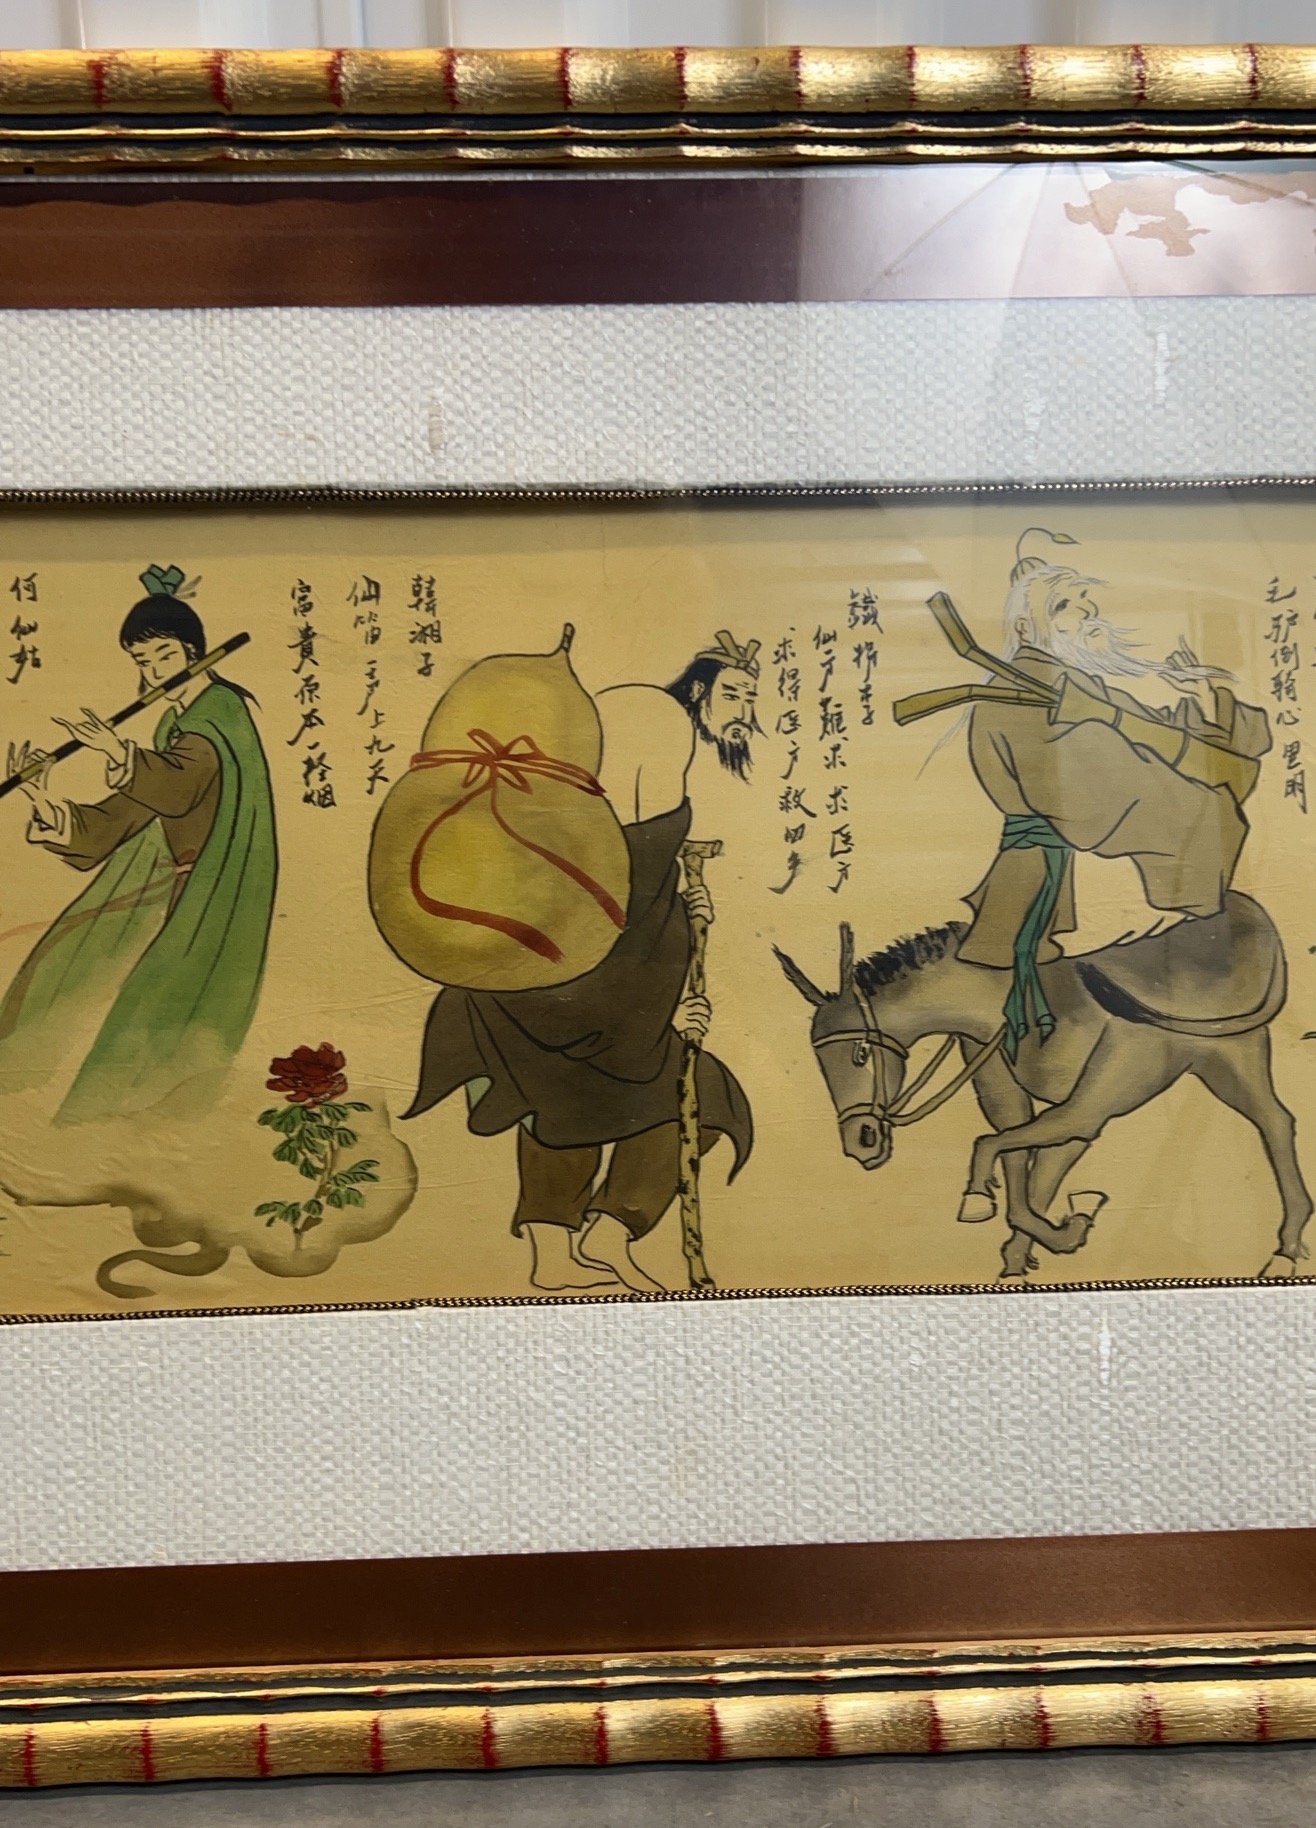 毛驴倒 心里明
鐵拐李
仙方難求求医方
求得医方救四乡
韓湘子
仙笛一声上九天
富貴原本一轻烟
何仙姑